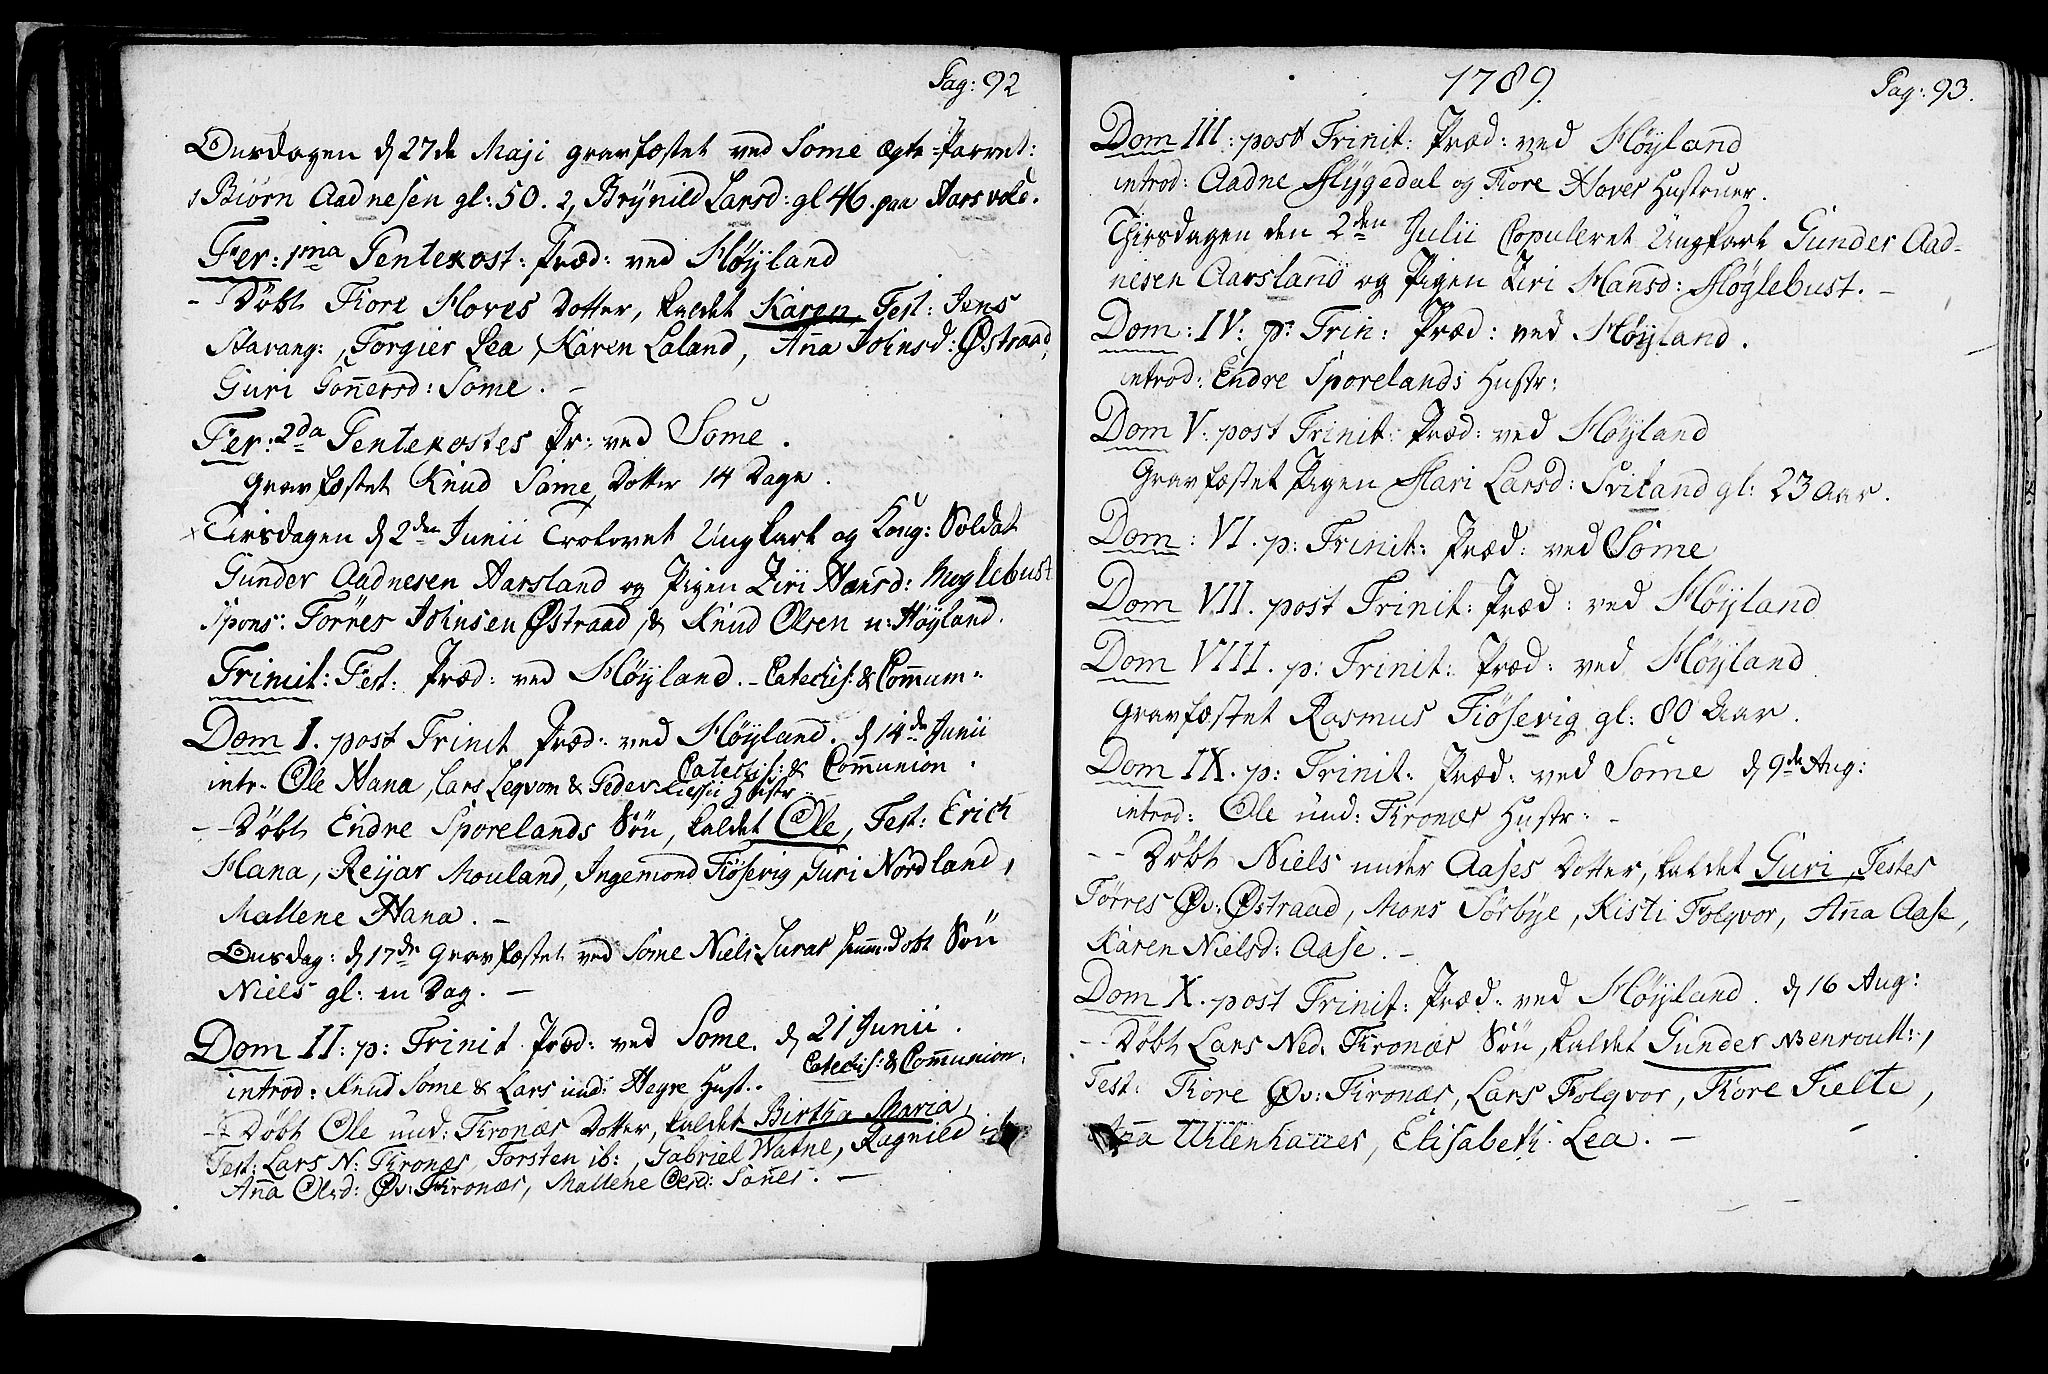 Pag: 92
Onsdagen d 27de Maji gravfæstet ved Some ægte-Parret:
1 Biörn Aadnesen gl: 50. 2, Brÿnild Larsd: gl 46. paa Aarsvold.
Fer: 1ma Pentekost: Præd: ved Höÿland
- Döbt Tore Hoves Dotter, kaldet Karen, Test: Jens
Aarang:, Torgier Lea, Karen Laland, Aña Johnsd: Östraad,
Guri Goñersd: Some. -
Fer: 2da Pentekostes Pr: ved Some.
Gravfæstet Knud Some, Dotter 14 Dage.
Tirsdagen d 2den Junii Trolovet Ungkarl og Kong: Soldat
Gunder Aadnesen Aarsland og Pigen Ziri Hansd: Huglebust
Spons: Törres Johnsen Östraad, & Knud Olsen n: Höÿland.
Trinit: Fest: Præd: ved Höÿland. - Catechis: & Com̃un:
Dom I. post Trinit Præd: ved Höÿland. d 14de Junii
Catechis: & Com̃union.
intr: Ole Hana, Lars Leqvom & Peder Hustr:
- - Döbt Endre Sporelands Sön, kaldet Ole, Test: Erich
Hana, Reijar Mouland, Ingemond Fiösevig, Guri Nordland,
Mallene Hana. -
Onsdag: d 17de Gravfæstet ved Some Niels Luras döbt Sön
Niels gl: en Dag. -
Dom II: p: Trinit Præd: ved Some. d 21 Junii.
Catechis: & Com̃union.
introd: Knud Some & Lars und: Hegre Hust.
- Döbt Ole und: Kronæs Dotter, kaldet Birtha Maria,
Test: Lars N: Kronæs, Torsten ib:, Gabriel Watne, Ragnild
Aña Olsd: Öv: Kronæs, Mallene Somes. -
1789.
Pag: 93.
Dom III: post Trinit: Præd: ved Höÿland
introd: Aadne Flÿgedal og Tore Hoves Hustruer.
Thirsdagen den 2den Julii Copuleret Ungkarl Gunder Aad-
nesen Aarsland og Pigen Ziri Hansd: Höglebust. -
Dom: IV: p: Trin: Præd: ved Höÿland.
introd: Endre Sporelands Hustr:
Dom V: post Trinit: Præd: ved Höÿland
Gravfæstet Pigen Mari Larsd: Sviland gl: 23 Aar.
Dom: VI. p: Trinit: Præd: ved Some
Dom VII. post Trinit: Præd: ved Höÿland
Dom VIII. p: Trinit: Præd: ved Höÿland
Gravfæstet Rasmus Fiösevig gl: 80 Aar.
Dom IX. p: Trinit: Præd: ved Some d 9de Aug:
introd: Ole und: Kronæs Hustr: -
- - Döbt Niels under Aases Dotter, kaldet Guri, Testes
Törres Öv: Östraad, Mons Sörbÿe, Kisti Folqvor, Aña Aase,
Karen Nielsd: Aase. -
Dom X. post Trinit: Præd: ved Höÿland. d 16 Aug:
- - Döbt Lars Ned: Kronæs Sön, kaldet Gunder,
Test: Tore Öv: Kronæs, Lars Folqvor, Tore Tielte,
Aña Uhlenhaues, Elisabeth Lea. -